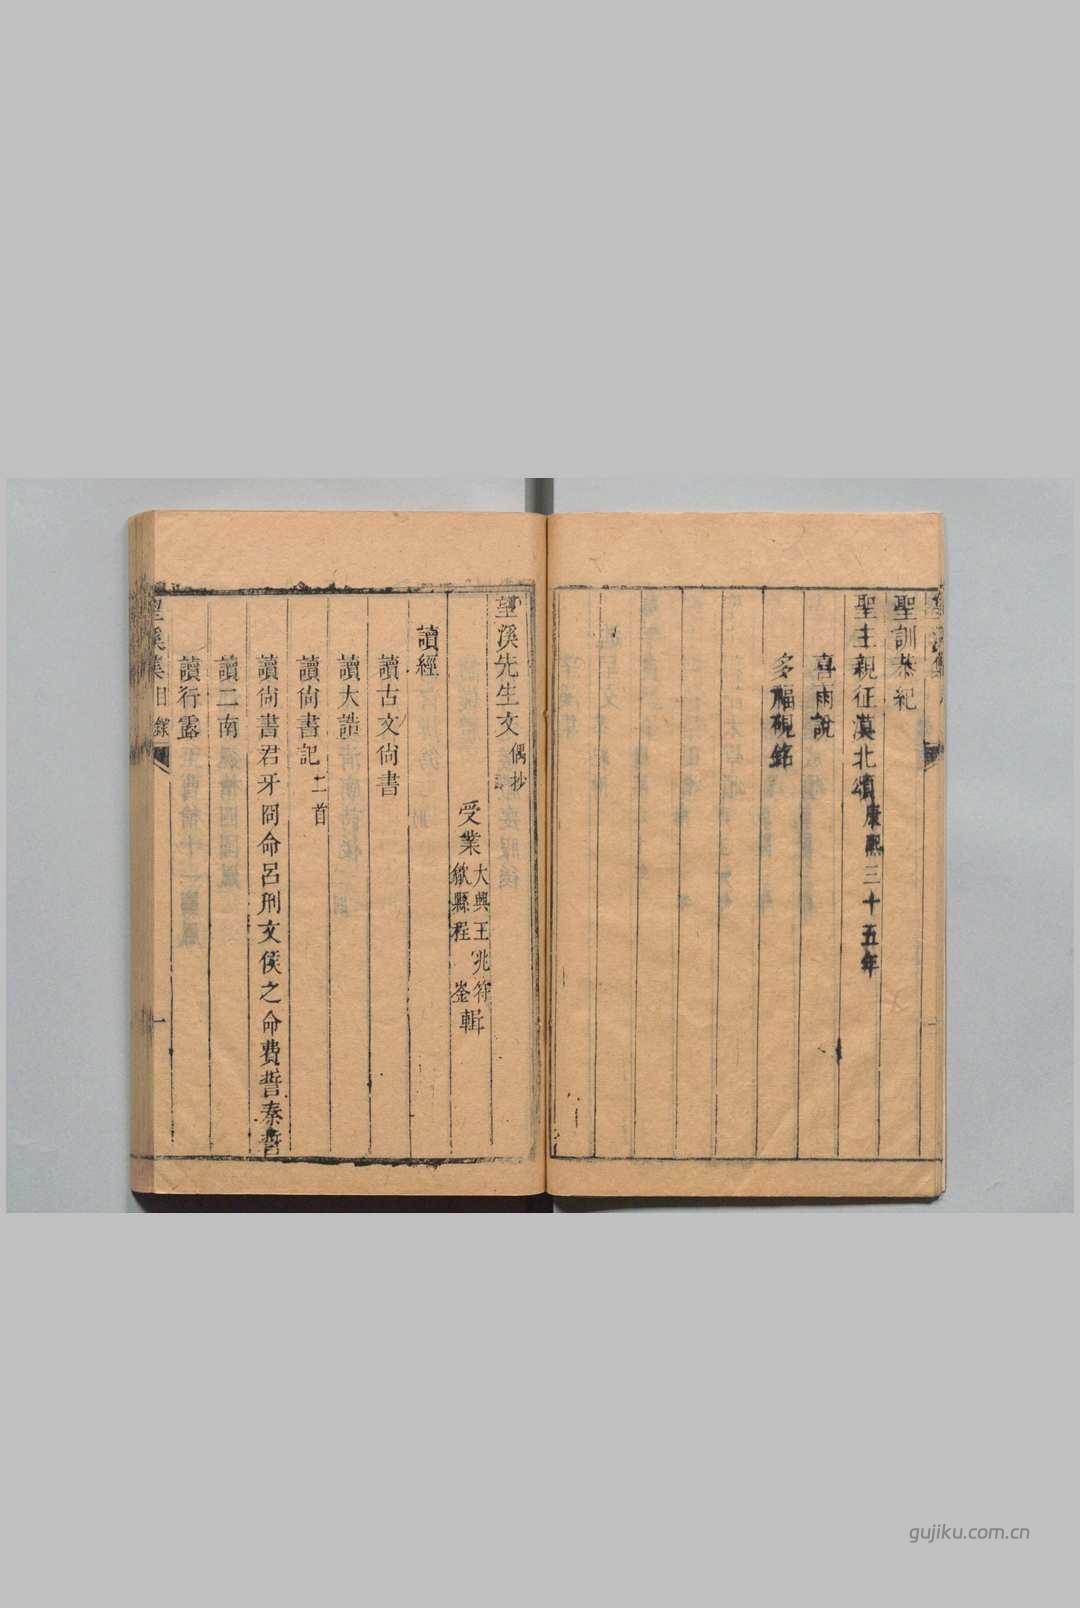 聖訓恭紀
聖主親征漠北頌康熙三十五年
喜雨說
多福硯銘
望溪先生文偶抄
受業大興王兆符歙縣程崟輯
讀經
讀古文尙書
讀大誥
讀尙書記二首
讀尙書君牙冏命呂刑文侯之命費誓秦誓
讀二南
讀行露
望溪集 目錄 一
gujiku.com.cn